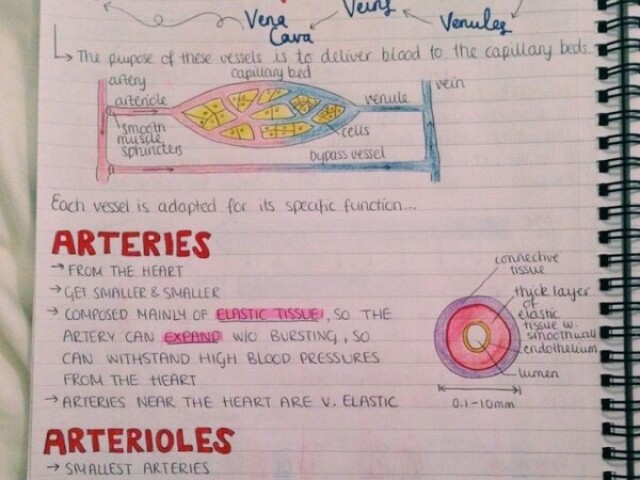 Vena
Cava
Veins
Venules
The purpose of these vessels is to deliver blood to the capillary beds.
artery
capillary bed
vein
arteriole
venule
smooth
muscle
sphincters
cells
bypass vessel
Each vessel is adapted for its specific function...
ARTERIES
→ FROM THE HEART
→ GET SMALLER & SMALLER
→ COMPOSED MAINLY OF ELASTIC TISSUE, SO THE
ARTERY CAN EXPAND W/O BURSTING, SO
CAN WITHSTAND HIGH BLOOD PRESSURES
FROM THE HEART
→ ARTERIES NEAR THE HEART ARE V. ELASTIC
connective
tissue
thick layer
of
elastic
tissue w.
smooth wall
endothelium
lumen
0.1-10mm
ARTERIOLES
→ SMALLEST ARTERIES